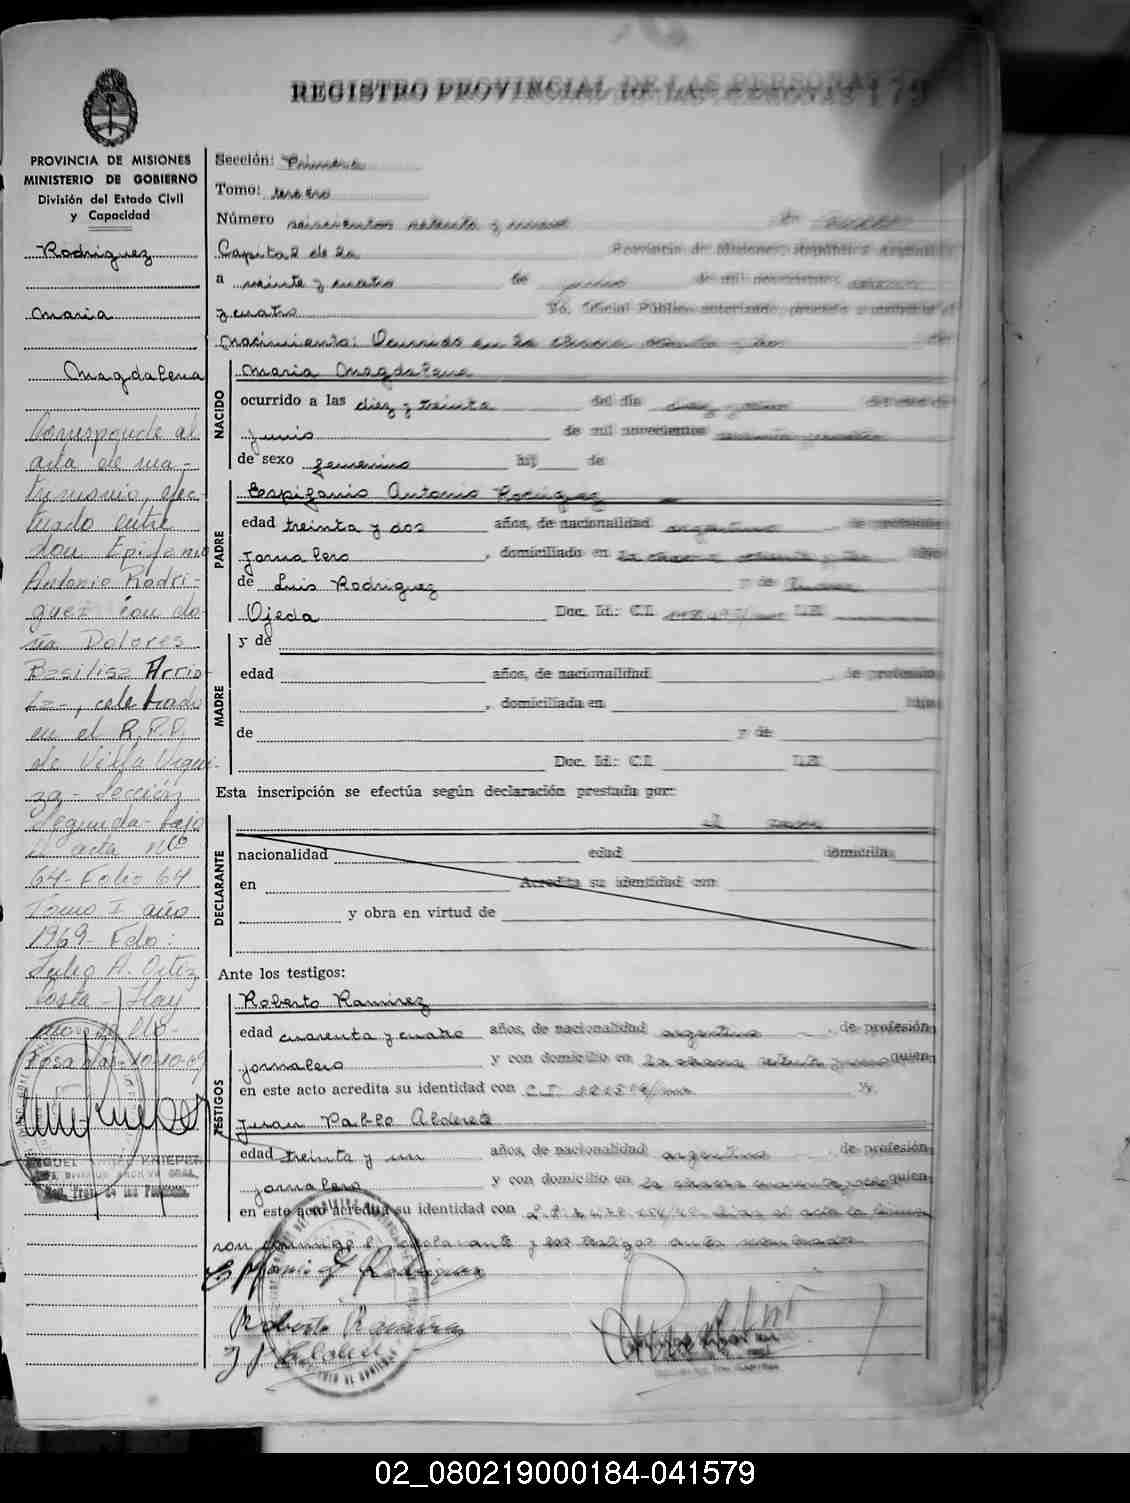 REGISTRO PROVINCIAL DE LAS PERSONAS 179
PROVINCIA DE MISIONES
MINISTERIO DE GOBIERNO
División del Estado Civil
y Capacidad
Rodriguez
Maria
Magdalena
Corresponde al
acta de ma-
trimonio, efec-
tuado entre
don Epifanio
Antonio Rodri-
guez con do-
ña Dolores
Basilisa Arrio-
la-, celebrado
en el R.P.P.
de Villa Urqui-
za- Sección
Segunda- bajo
acta Nº
64- Folio 64
Tomo I año
1969- Fdo:
Julio A. Ortiz
Costa- Hay
un sello-
Posadas-10-10-69
Sección: Primera
Tomo: tercero
Número seiscientos setenta y nueve En
Capital de la Provincia de Misiones, República Argentina
a veinte y cuatro de junio de mil novecientos sesenta
y cuatro Yo, Oficial Público autorizado, procedo a inscribir el
Nacimiento: Ocurrido en la chacra
NACIDO
Maria Magdalena
ocurrido a las diez y treinta del día del mes de
junio de mil novecientos sesenta y cuatro
de sexo femenino hij de
PADRE
Espifanio Antonio Rodriguez
edad treinta y dos años, de nacionalidad argentino de profesión
jornalero, domiciliado en la chacra hijo
de Luis Rodriguez y de
Ojeda Doc. Id.: C.I. L.E.
MADRE
y de
edad años, de nacionalidad de profesión
, domiciliada en hija
de y de
Doc. Id.: C.I. L.E.
Esta inscripción se efectúa según declaración prestada por:
DECLARANTE
el padre
nacionalidad edad domicilia
en Acredita su identidad con
y obra en virtud de
Ante los testigos:
TESTIGOS
Roberto Ramirez
edad cuarenta y cuatro años, de nacionalidad argentino de profesión
jornalero y con domicilio en la chacra quien
en este acto acredita su identidad con C.I. Y.
Juan Pablo Alderete
edad treinta y un años, de nacionalidad argentino de profesión
jornalero y con domicilio en la chacra quien
en este acto acredita su identidad con
son conmigo el declarante y los testigos antes nombrados
Epifanio A Rodriguez
Roberto Ramirez
02_080219000184-041579